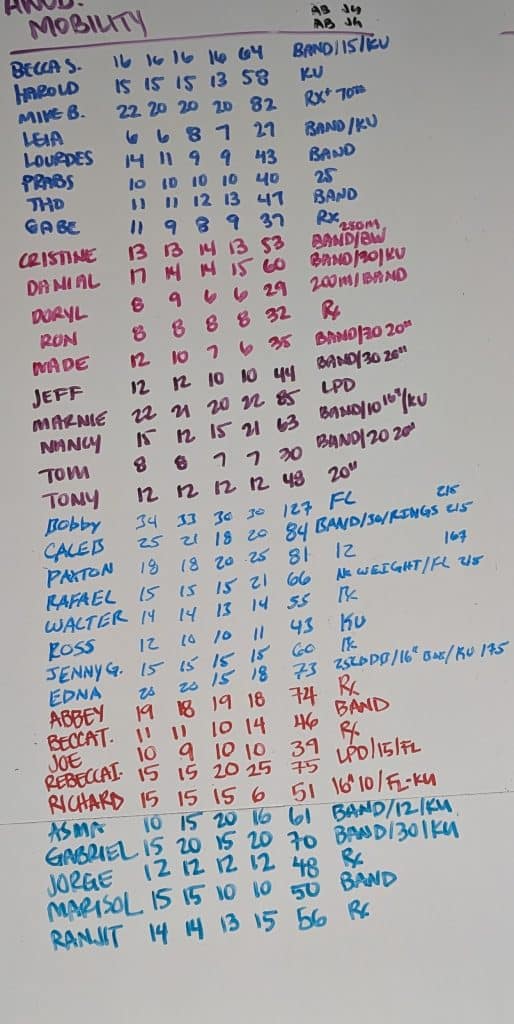 MOBILITY
AB JG
AB JG
BECCA S. 16 16 16 16 64 BAND/15/KU
HAROLD 15 15 15 13 58 KU
MIKE B. 22 20 20 20 82 RX+ 70#
LEIA 6 6 8 7 27 BAND/KU
LOURDES 14 11 9 9 43 BAND
PRABS 10 10 10 10 40 25
THO 11 11 12 13 47 BAND
GABE 11 9 8 9 37 Rx
CRISTINE 13 13 14 13 53 250M BAND/BW
DANIAL 17 14 14 15 60 BAND/30/KU
DORYL 8 9 6 6 29 200M/BAND
RON 8 8 8 8 32 Rx
WADE 12 10 7 6 35 BAND/30 20"
JEFF 12 12 10 10 44 BAND/30 20"
MARNIE 22 21 20 22 85 LPD
NANCY 15 12 15 21 63 BAND/10 16"/KU
TOM 8 8 7 7 30 BAND/20 20"
TONY 12 12 12 12 48 20"
BOBBY 34 33 30 30 127 FL
CALEB 25 21 18 20 84 BAND/30/RINGS 215
PAXTON 18 18 20 25 81 12 167
RAFAEL 15 15 15 21 66 NO WEIGHT/FL 215
WALTER 14 14 13 14 55 Rx
ROSS 12 10 10 11 43 KU
JENNY G. 15 15 15 15 60 Rx
EDNA 20 20 15 18 73 BOX/KU 175
ABBEY 19 18 19 18 74 Rx
BECCA T. 11 11 10 14 46 BAND
JOE 10 9 10 10 39 Rx
REBECCA T. 15 15 20 25 75 LPD/15/FL
RICHARD 15 15 15 6 51 16" 10/FL-KU
ASMA 10 15 20 16 61 BAND/12/KU
GABRIEL 15 20 15 20 70 BAND/30/KU
JORGE 12 12 12 12 48 Rx
MARISOL 15 15 10 10 50 BAND
RANJIT 14 14 13 15 56 Rx